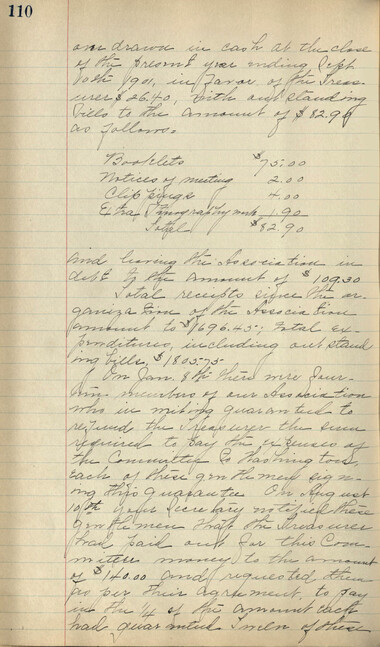 110
over drawn in cash at the close
of the present year ending Sept
10th 1901, in favor of the Treas-
urer $26.40, with outstanding
bills to the amount of $82.90
as follows.
Booklets $75.00
Notices of meeting 2.00
Clippings 4.00
Extra Stenography work 1.90
Total $82.90
and leaving the Association in
debt to the amount of $109.30
Total receipts since the or-
ganization of the Association
amount to $1696.45; total ex-
penditures, including outstand
ing bills, $1805.75
On Jan. 8th there were four-
members of our Association
who in writing guaranteed to
refund the Treasurer the sum
required to pay the expenses of
the Committee to Washington,
each of these gentlemen sign-
ing this guarantee On August
10th your Secretary notified these
gentlemen that the Treasurer
had paid out for this Com-
mittee money to the amount
of $140.00 and requested them
as per their agreement, to pay
in the 1/4 of the amount each
had guaranteed 3 men of these